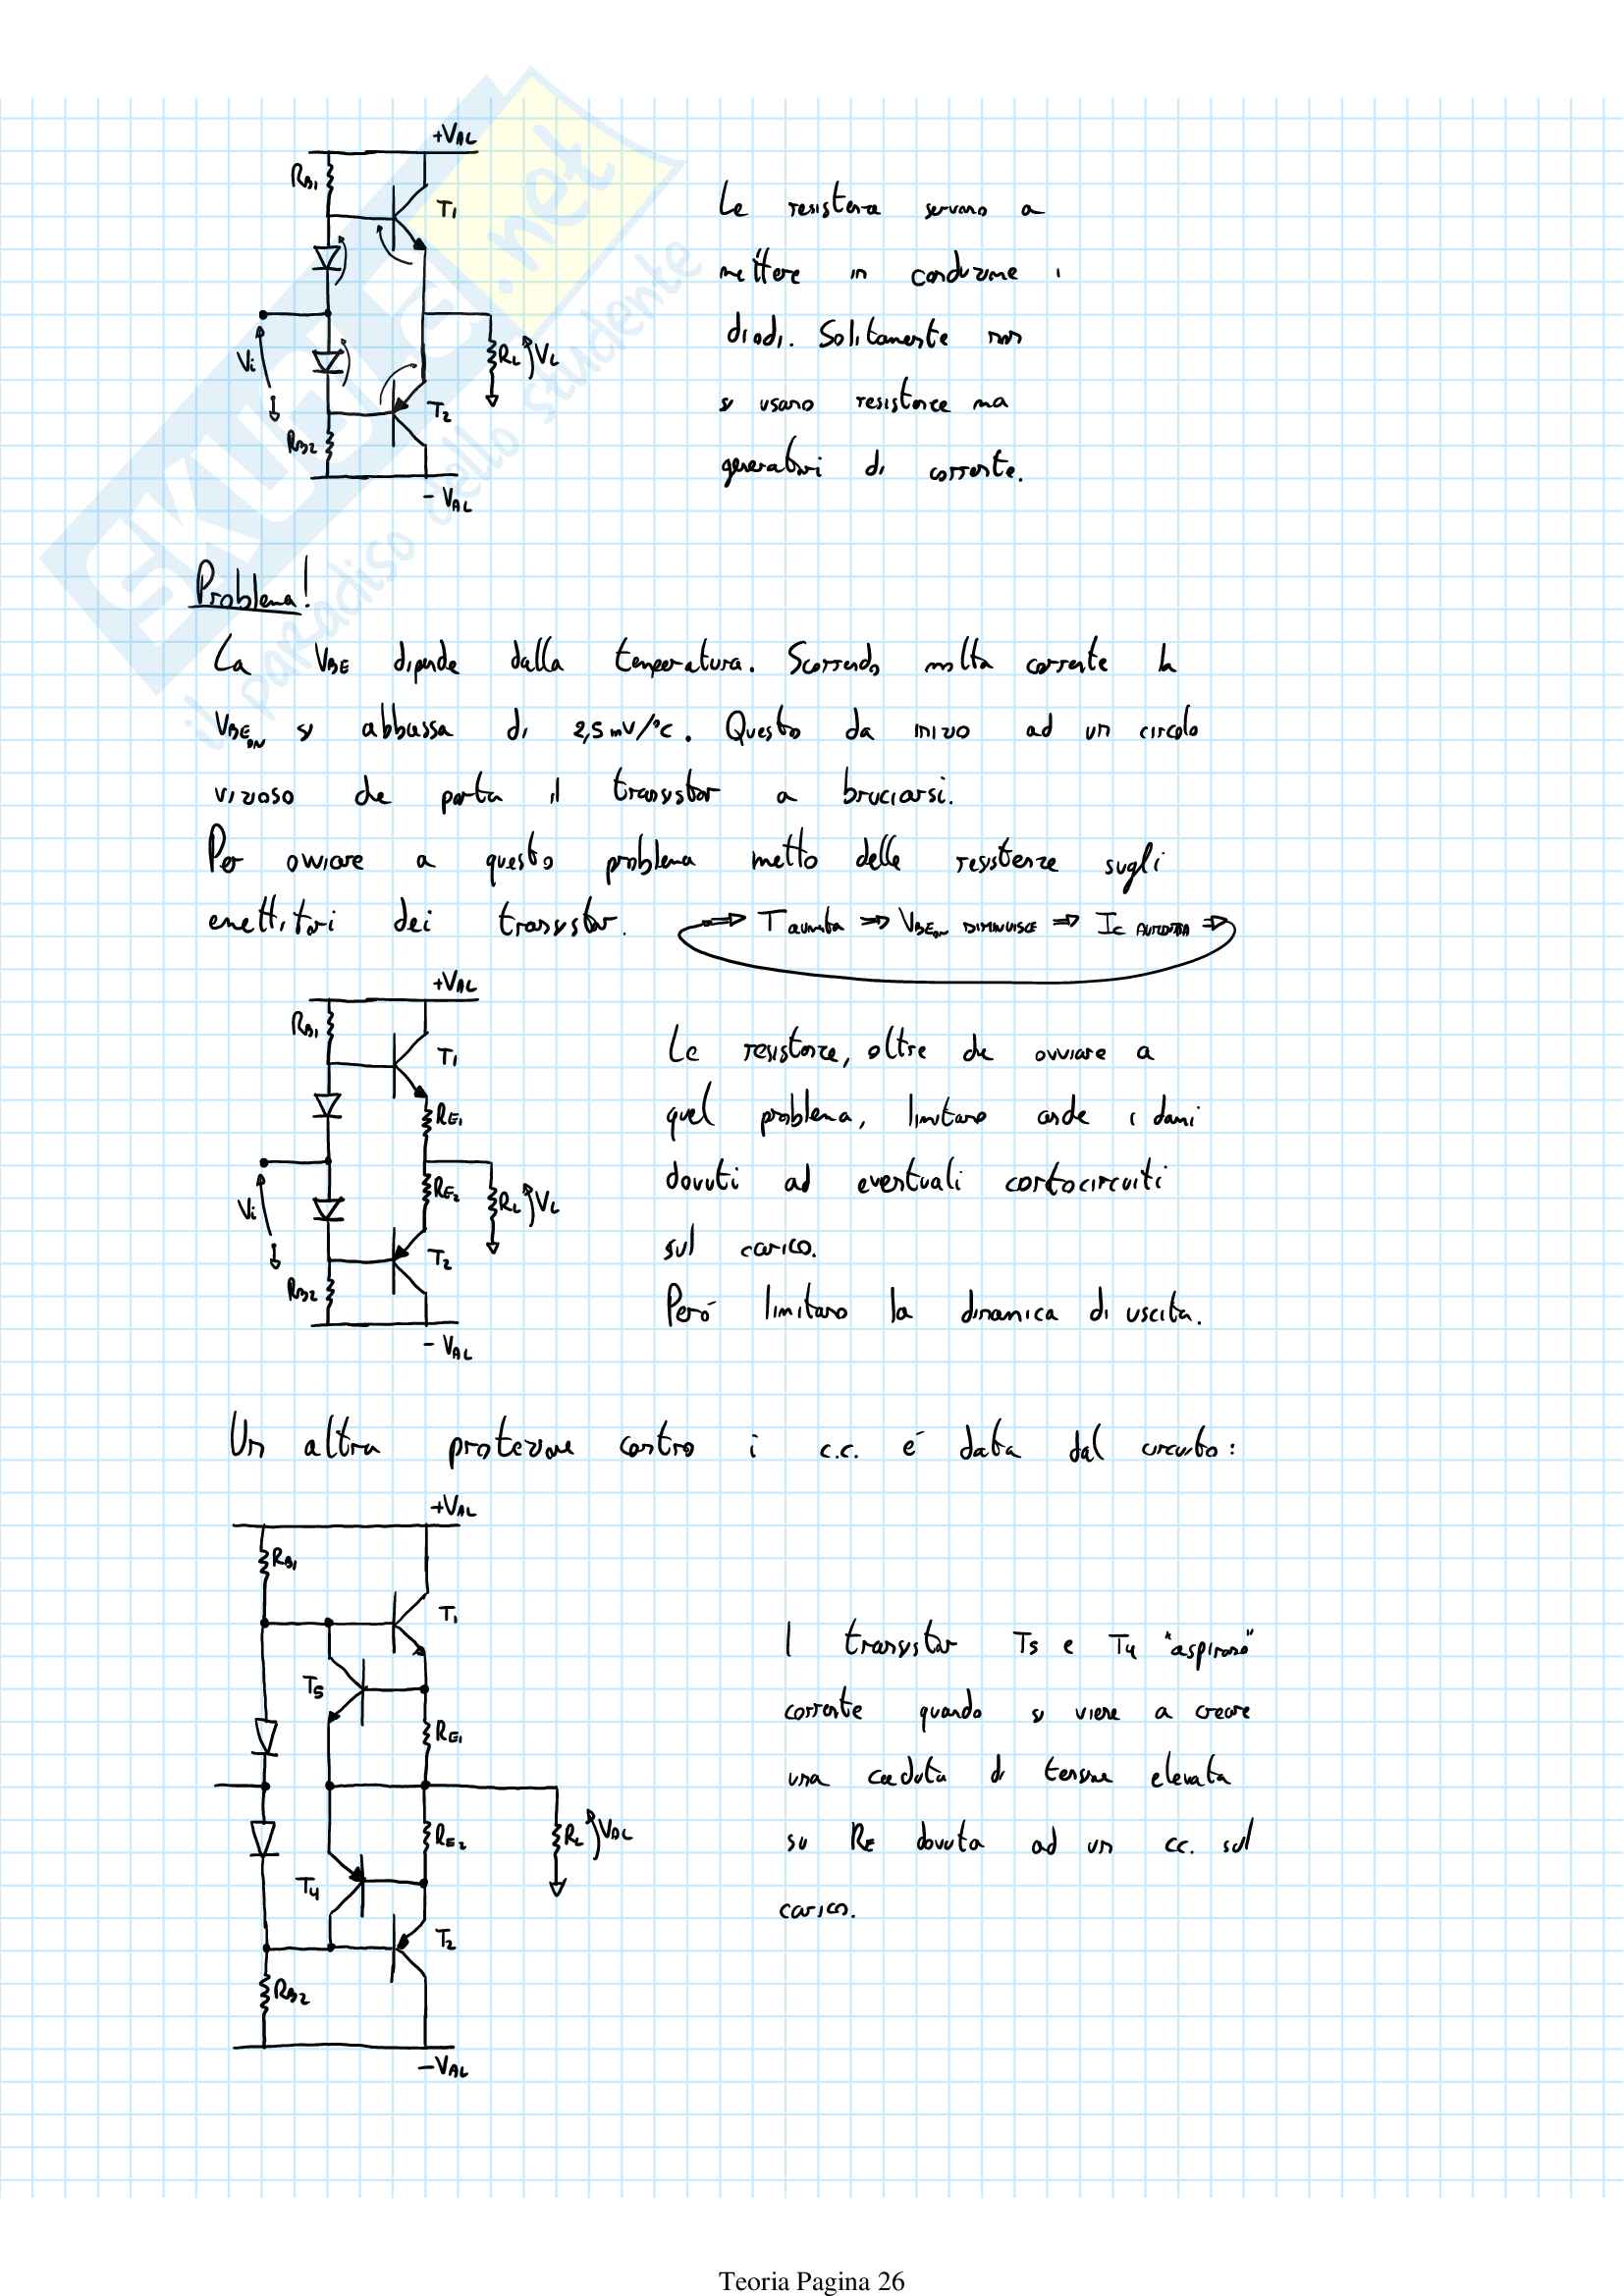 +VAL
RB1
T1
Vi
RL
VL
T2
RB2
- VAL
Le resistenza servono a
mettere in conduzione i
diodi. Solitamente non
si usano resistenze ma
generatori di corrente.
SKUOLA.net
il paradiso dello studente
Problema!
La VBE dipende dalla temperatura. Scorrendo molta corrente la
VBEON si abbassa di 2,5mV/°C. Questo da inizio ad un circolo
vizioso che porta il transistor a bruciarsi.
Per ovviare a questo problema metto delle resistenze sugli
emettitori dei transistor. ⇒ T aumenta ⇒ VBEON DIMINUISCE ⇒ IC AUMENTA ⇒
+VAL
RB1
T1
RE1
Vi
RE2
RL
VL
T2
RB2
- VAL
Le resistenze, oltre che ovviare a
quel problema, limitano anche i danni
dovuti ad eventuali cortocircuiti
sul carico.
Peró limitano la dinamica di uscita.
Un altra protezione contro i c.c. é data dal circuito:
+VAL
RB1
T1
T5
RE1
RE2
RL
VAL
T4
T2
RB2
-VAL
I transistor T5 e T4 "aspirano"
corrente quando si viene a creare
una caduta di tensione elevata
su RE dovuta ad un cc. sul
carico.
Teoria Pagina 26